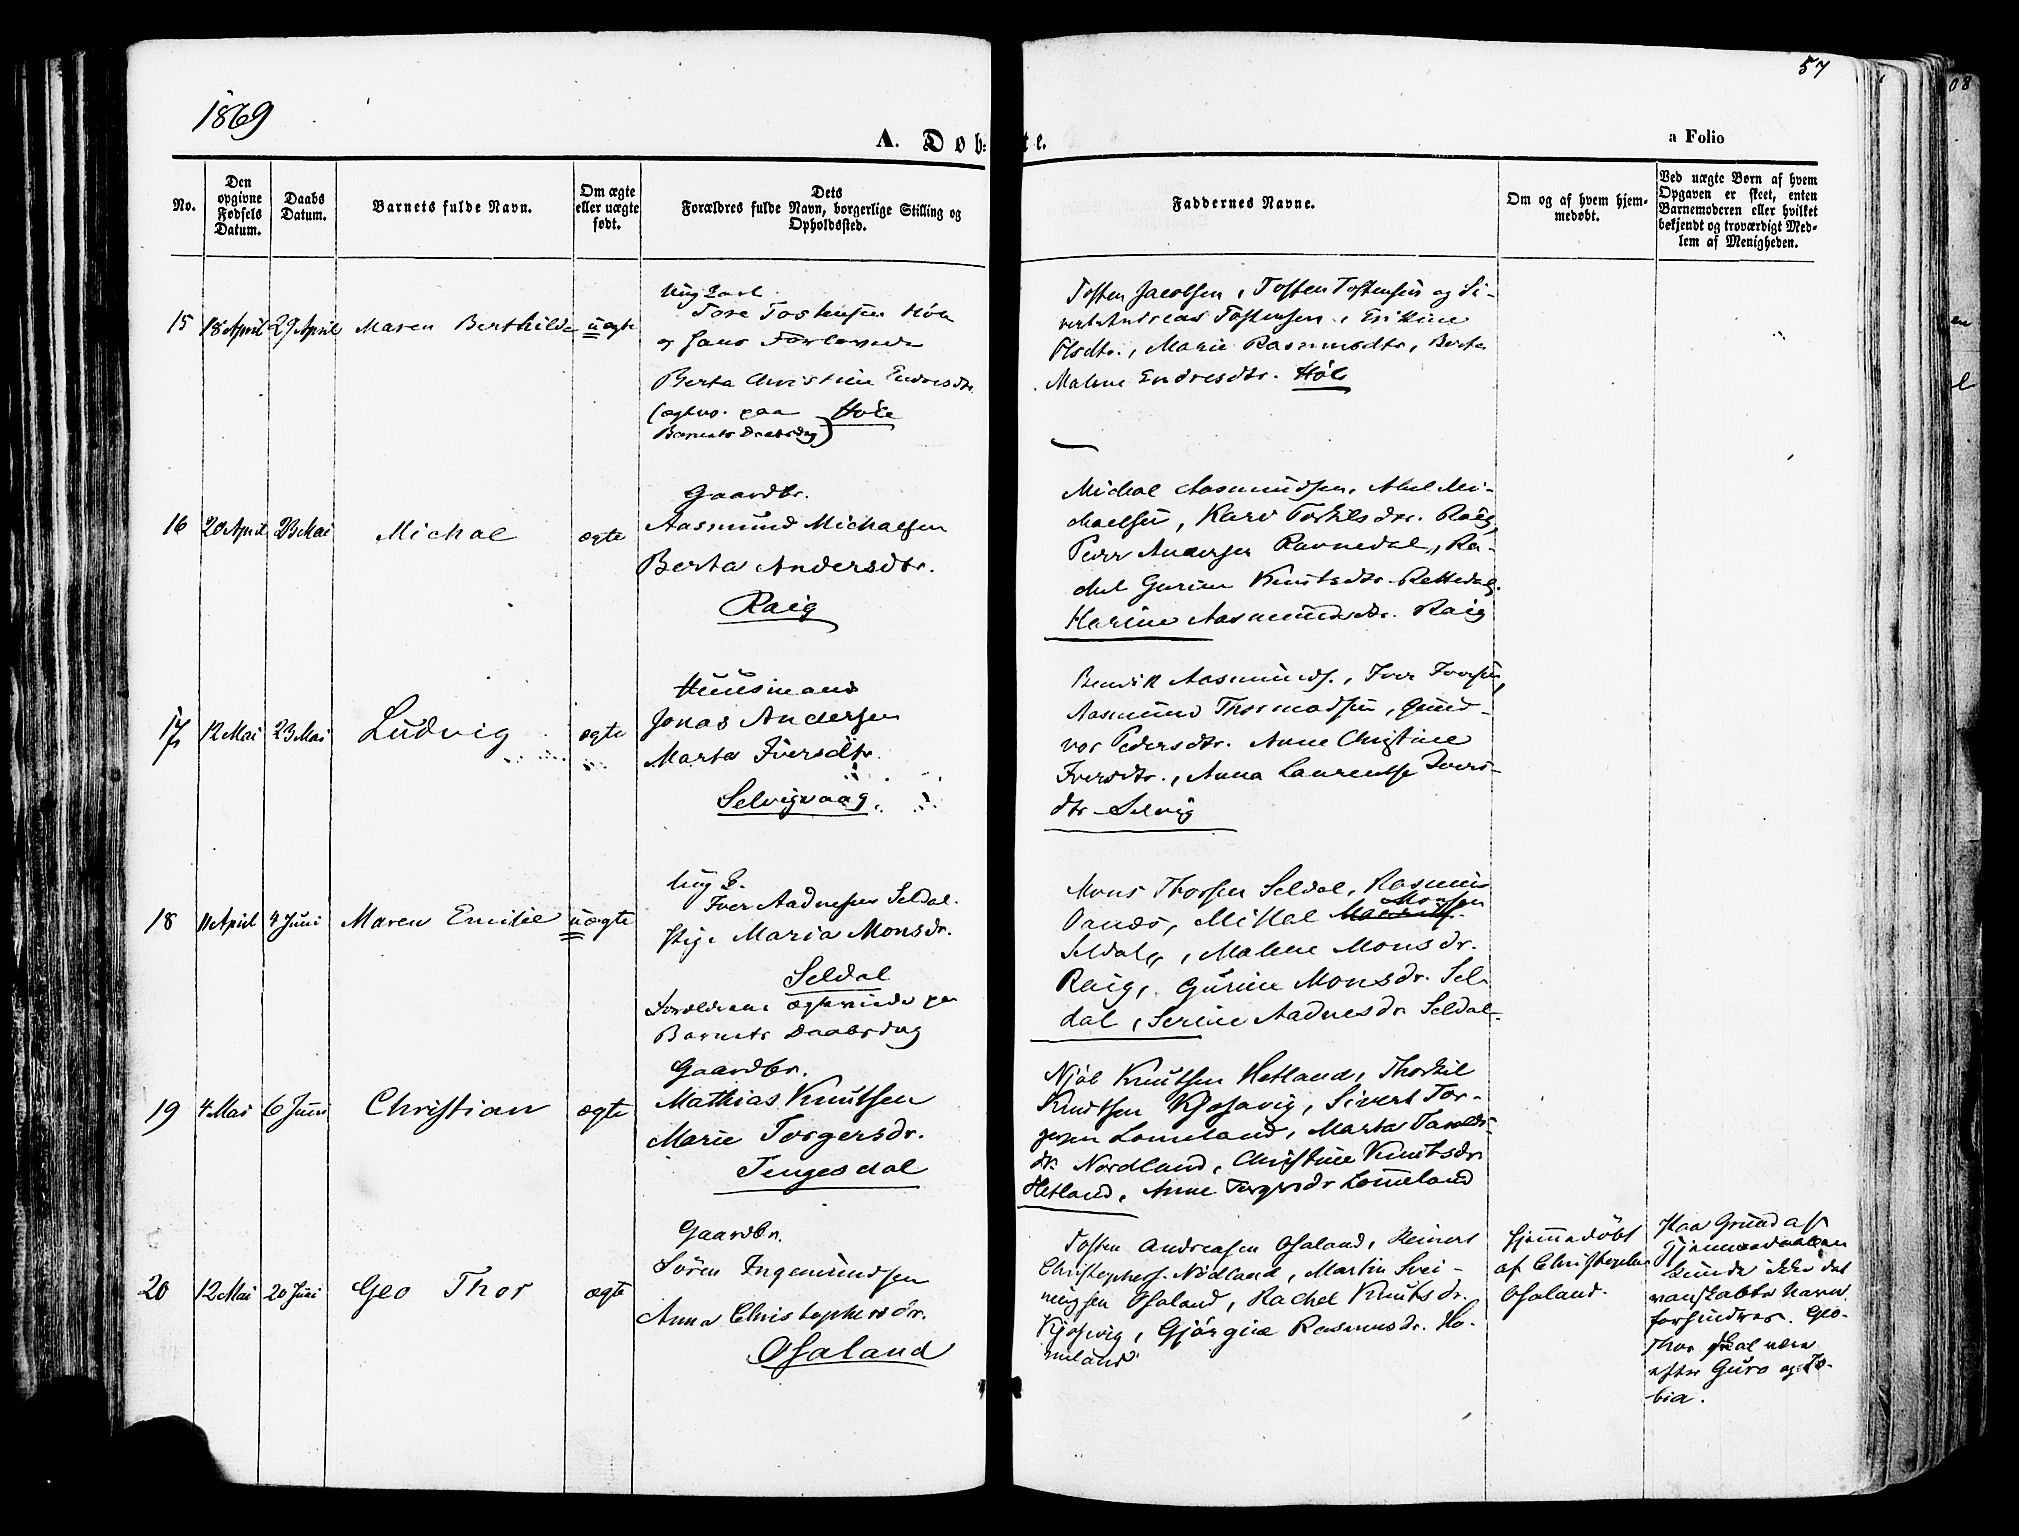 1869
57
A. Døbte.
a Folio
No.
Den opgivne Fødsels Datum.
Daabs Datum.
Barnets fulde Navn.
Om ægte eller uægte født.
Dets Forældres fulde Navn, borgerlige Stilling og Opholdssted.
Faddernes Navne.
Om og af hvem hjemmedøbt.
Ved uægte Børn af hvem Opgaven er skeet, enten Barnemoderen eller hvilket bekjendt og troværdigt Medlem af Menigheden.
15 18 April 29 April Maren Berthilde uægte
Ungkarl
Tore Tostensen Høle
og hans Forlovede
Berta Christine Endresdtr.
(ægtev. paa Høle
Barnets Daabsdag)
Tosten Jacobsen, Tosten Tostensen og Si-
vert Andreas Tostensen, Erikine
Olsdtr., Marie Rasmusdtr., Berta
Malene Endresdtr. Høle
16 20 April 23 Mai Michal ægte
Gaardbr.
Aasmund Michalsen
Berta Andersdtr.
Raig
Michal Aasmundsen, Abel Mi-
chaelsen, Kari Torkilsdtr. Raig,
Peder Andersen Ravnedal, Ra-
chel Gurine Knutsdtr. Rettedal,
Harine Aasmundsdtr. Raig
17 12 Mai 23 Mai Ludvig ægte
Huusmand
Jonas Andersen
Marta Iversdtr.
Selvigvaag.
Bendik Aasmunds., Iver Iversen,
Aasmund Thormodsen, Gund-
vor Pedersdtr. Anne Christine
Iversdtr., Anna Laurentse Ivers-
dtr Selvig
18 11 April 4 Juni Maren Emilie uægte
Ung K.
Iver Aadnesen Seldal.
Pige Maria Monsdr.
Seldal
Forældrene ægteviede paa
Barnets Daabsdag
Mons Thorsen Seldal, Rasmus
Monsen
Oanæs, Mikkal
Seldal, Malene Monsdr.
Raig, Gurine Monsdr. Sel-
dal, Serine Aadnesdr Seldal.
19 4 Mai 6 Juni Christian ægte
Gaardbr.
Mathias Knutsen
Marie Torgersdr.
Tengesdal
Njæl Knutsen Hetland, Thorkil
Knudtsen Kjosavig, Sivert Tor-
gersen Lomeland, Marta Taralds-
dr. Nordland, Christine Knutsdr
Hetland, Anne Torgersdr Lomeland
20 12 Mai 20 Juni Geo Thor ægte
Gaardbr.
Søren Ingemundsen
Anna Christophersdr.
Osaland
Tosten Andreasen Osaland, Reinert
Christophers. Nødland, Martin Svei-
nungsen Osaland, Rachel Knutsdr.
Kjosvig, Gjørgine Rasmusdr. Ho-
meland
Hjemmedøbt
af Christopher
Osaland.
Paa Grund af
Hjemmedaaben
kunde ikke det
vanskabte Navn
forhindres. Geo-
Thor skal være
efter Guro og To-
bia.